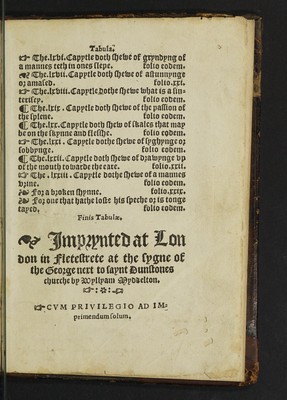 Tabula.
☞ The.lxvi. Capytle doth shewe of gryndyng of
a mannes teth in ones slepe. folio eodem.
The.lxvii. Capytle doth shewe of astunnynge
or amased. folio.xxi.
☞ The.lxviii. Capytle dothe shewe what is a
folio eodem.
¶ The.lxix. Capytle doth shewe of the passion of
the splene. folio eodem.
¶ The.lxx. Capytle doth shew of skales that may
be on the skynne and fleshe. folio eodem.
☞ The.lxxi. Capytle dothe shewe of syghynge or
sobbynge. folio eodem.
¶ The.lxxii. Capytle doth shewe of drawynge vp
of the mouth to warde the eare. folio.xxii.
☞ The.lxxiii. Capytle dothe shewe of a mannes
vrine. folio eodem.
For a broken shynne. folio.xxix.
For one that hathe loste his speche or is tonge
tayed, folio eodem.
Finis Tabulæ.
Imprynted at Lon
don in Fletestrete at the sygne of
the George next to saynt Dunstones
churche by Wyllyam Myddelton.
☞ CVM PRIVILEGIO AD IM-
primendum solum.